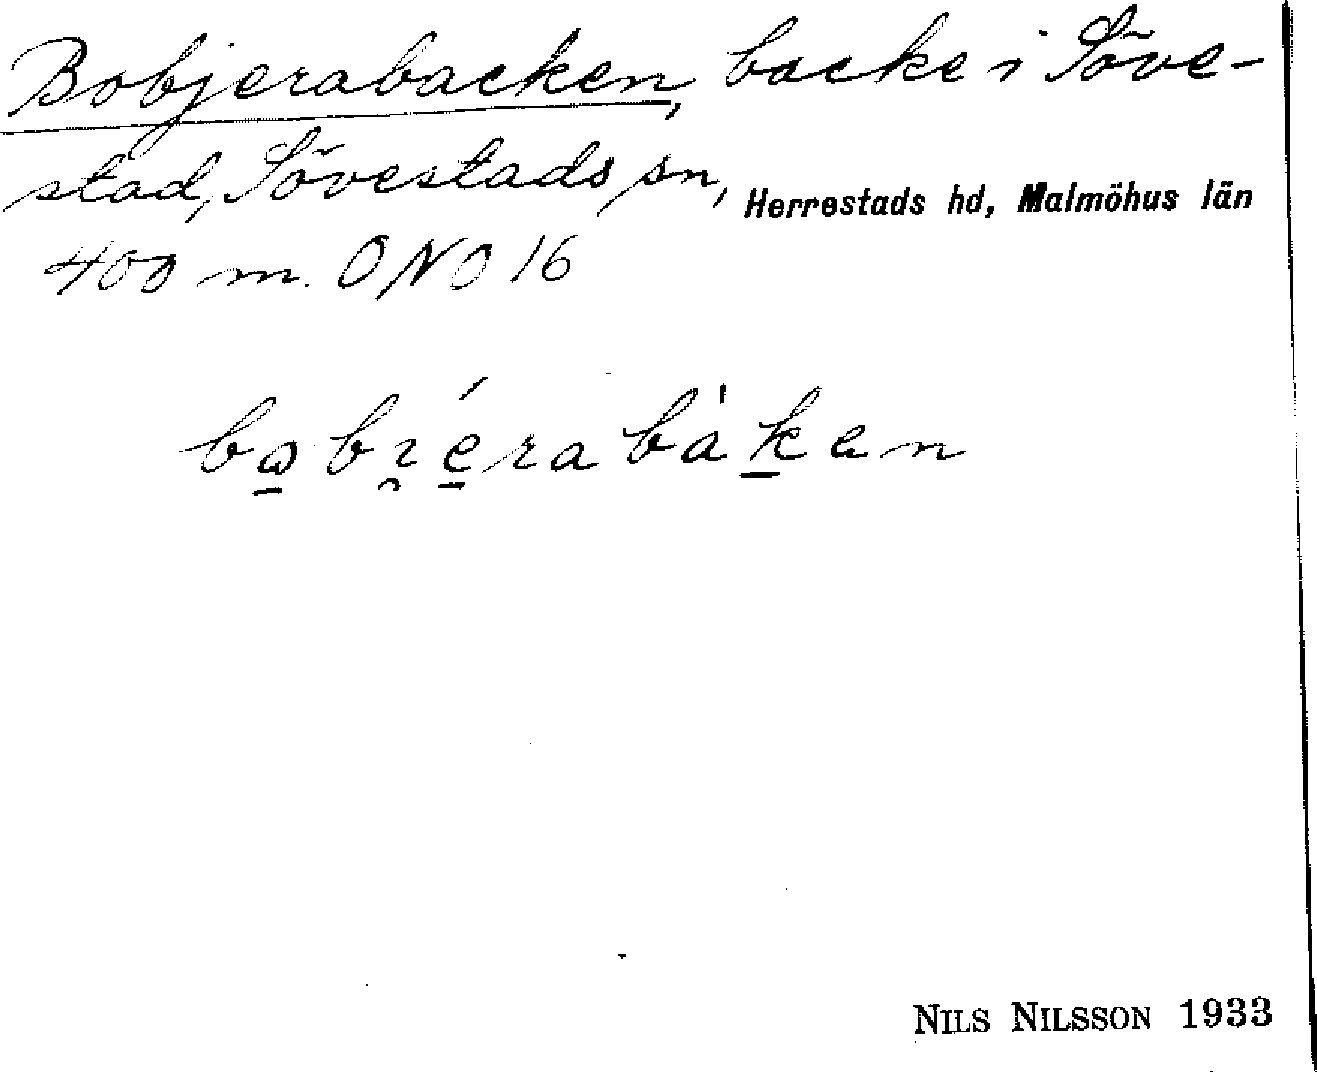 Bobjerabacken, backe i Söve-
stad, Sövestads sn, Herrestads hd, Malmöhus län
400 m. ONO 16
NILS NILSSON 1933